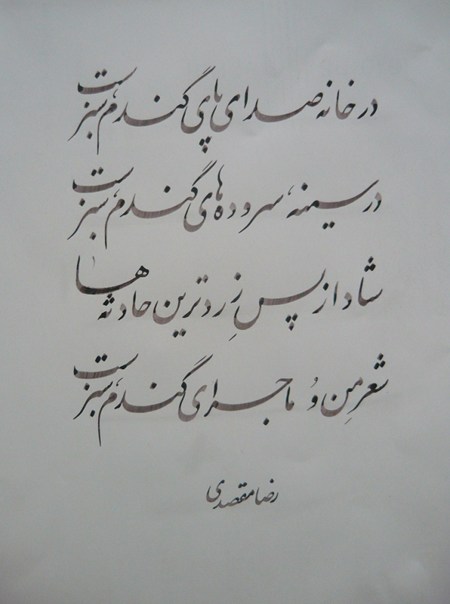 در خانه صدای پای گندم سبزست
در سینه، سروده‌های گندم سبزست
شاد از پسِ زردترین حادثه‌ها
شعرِ من و ماجرای گندم سبزست
رضا مقصدی